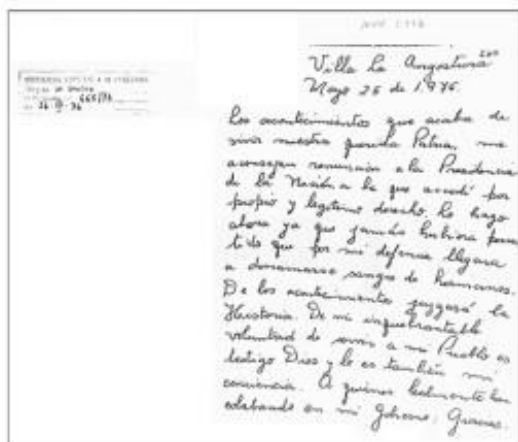 Villa La Angostura
Mayo 25 de 1.976.
Los acontecimientos que acaba de
vivir nuestra querida Patria, me
aconsejan renunciar a la Presidencia
de la Nación a la que accedí por
propio y legítimo derecho. Lo hago
ahora ya que jamás hubiera
que por mi defensa llegara
a derramarse sangre de hermanos.
De los acontecimientos juzgará la
Historia. De mi inquebrantable
voluntad de servir a mi Pueblo es
testigo Dios y lo es también mi
conciencia. A quienes lealmente han
colaborado en mi Gobierno: Gracias.